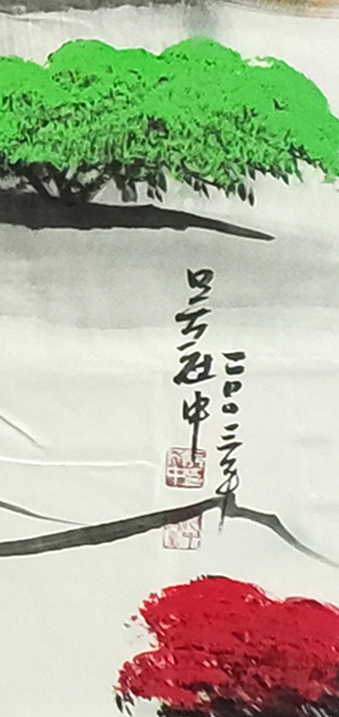 吴冠中
二〇〇三年